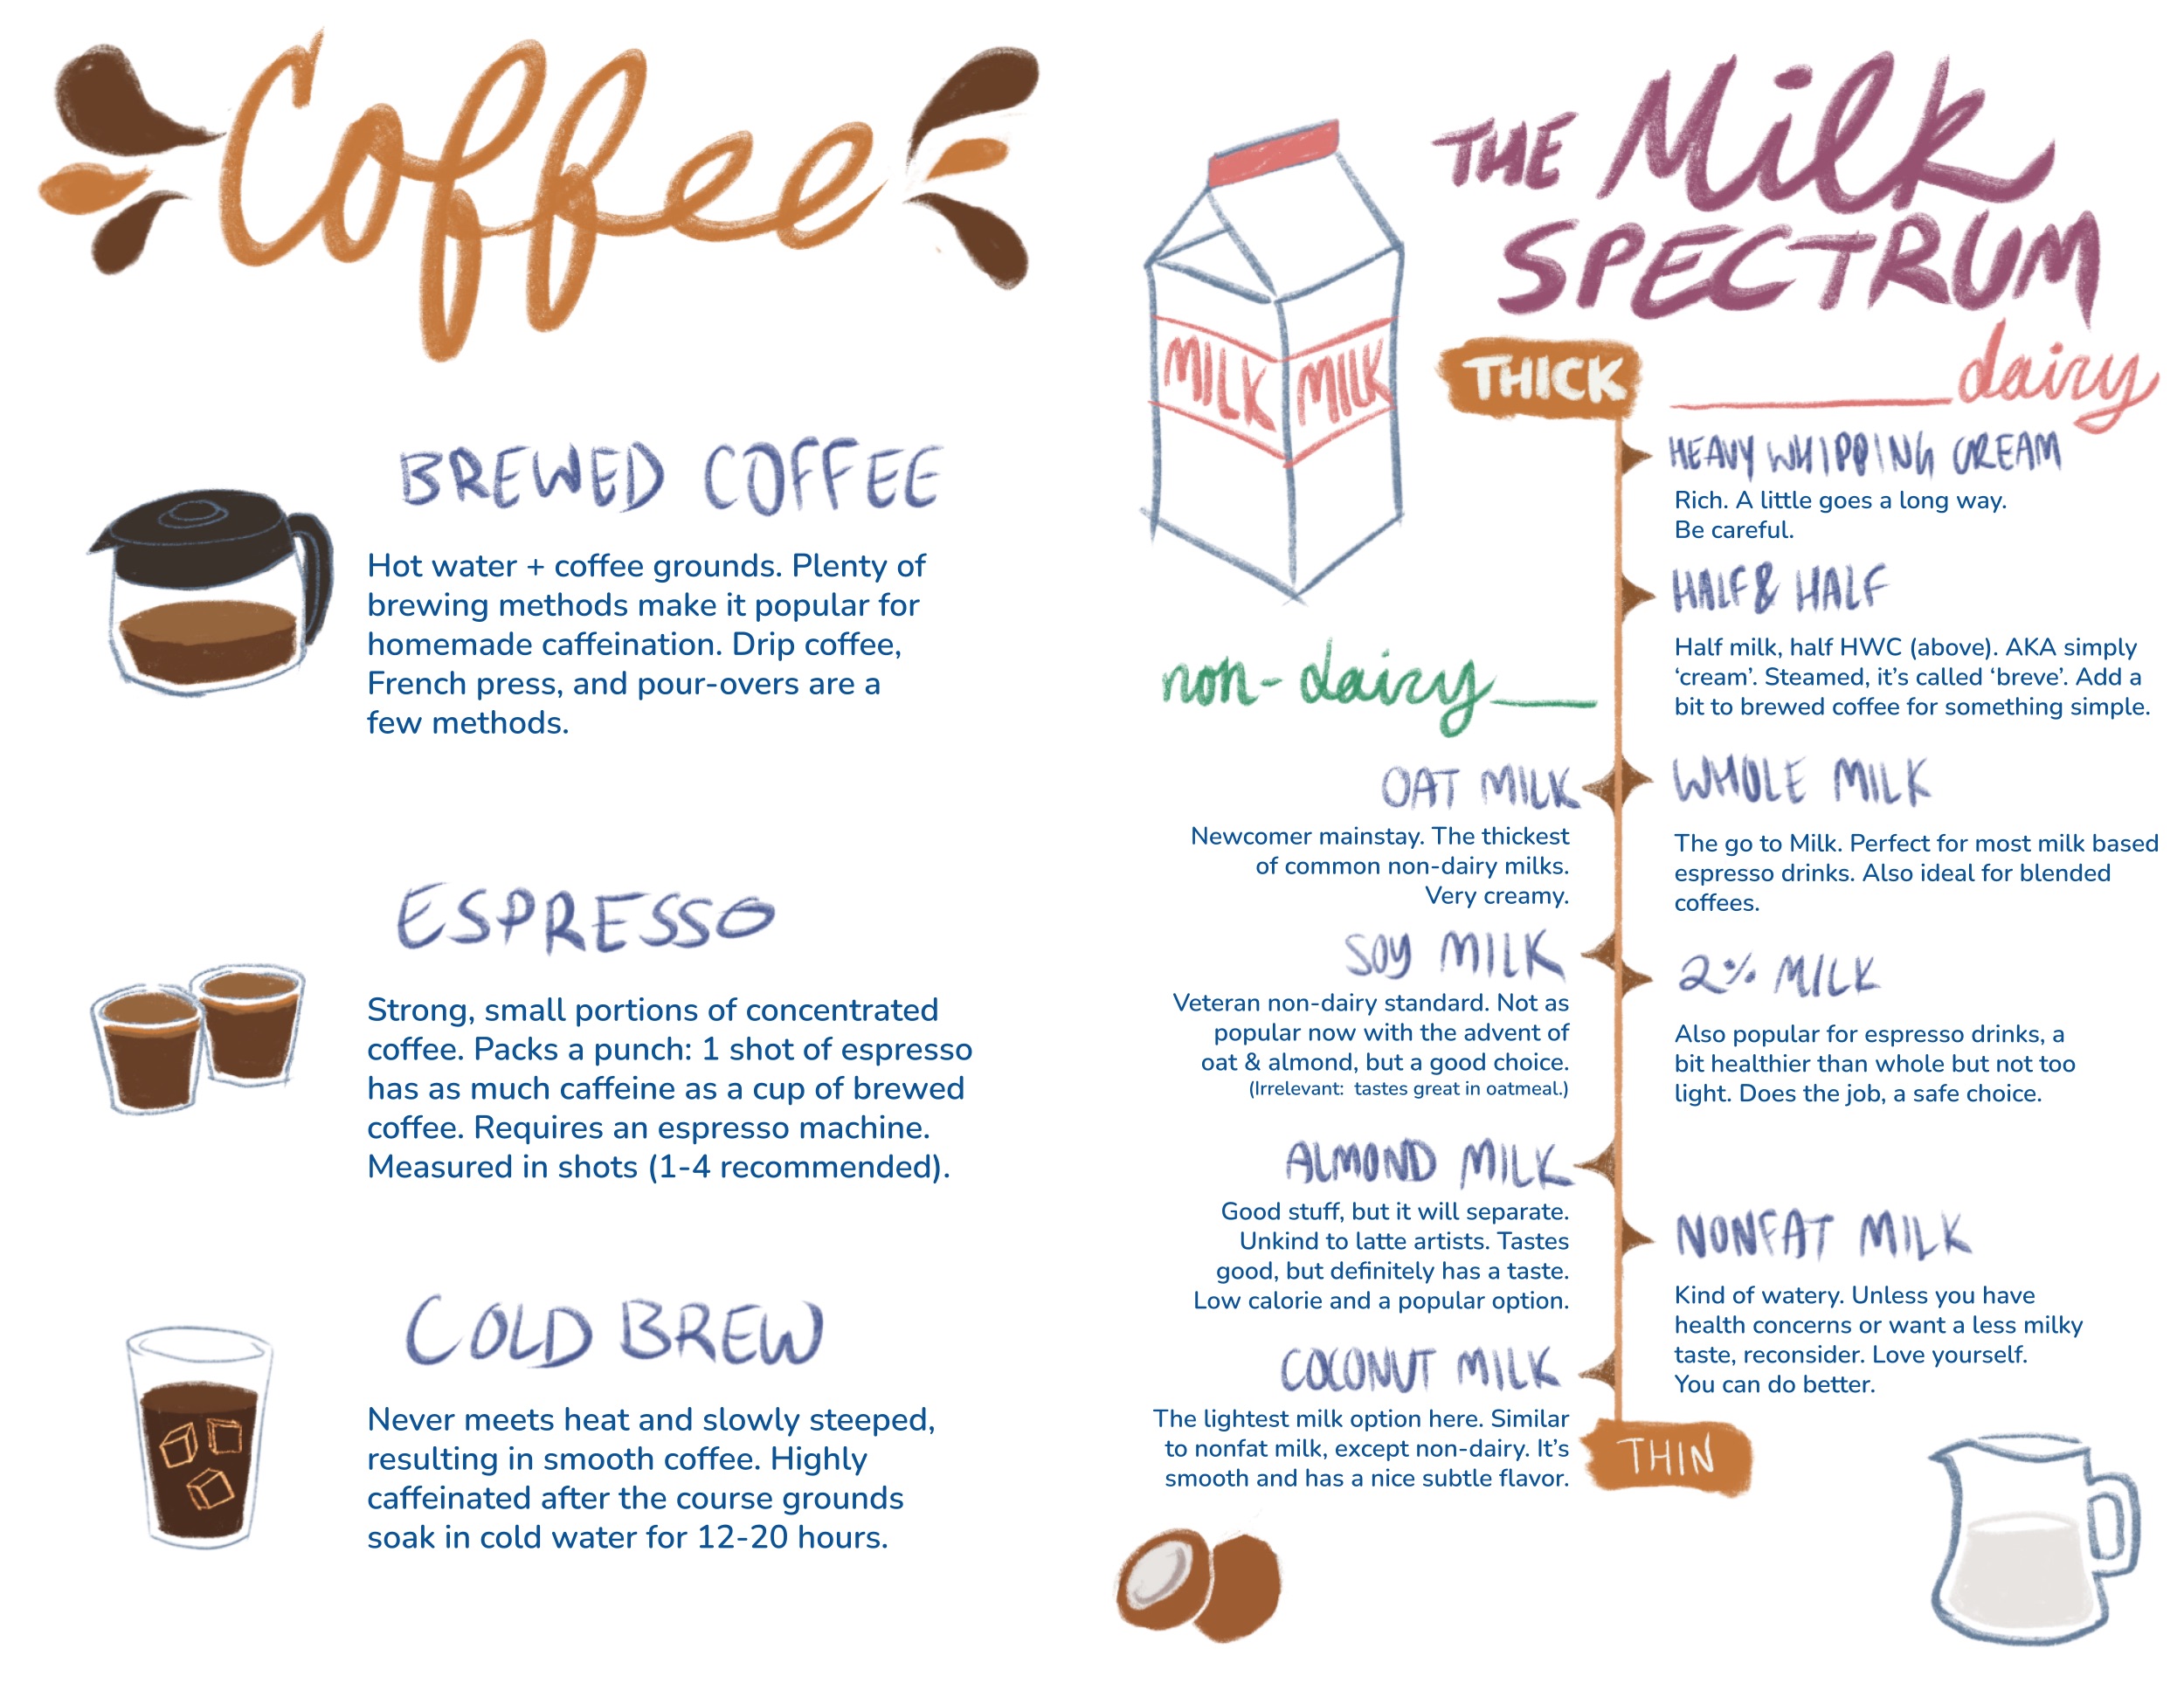 Coffee
BREWED COFFEE
Hot water + coffee grounds. Plenty of
brewing methods make it popular for
homemade caffeination. Drip coffee,
French press, and pour-overs are a
few methods.
ESPRESSO
Strong, small portions of concentrated
coffee. Packs a punch: 1 shot of espresso
has as much caffeine as a cup of brewed
coffee. Requires an espresso machine.
Measured in shots (1-4 recommended).
COLD BREW
Never meets heat and slowly steeped,
resulting in smooth coffee. Highly
caffeinated after the course grounds
soak in cold water for 12-20 hours.
THE Milk
SPECTRUM
MILK MILK
THICK
dairy
HEAVY WHIPPING CREAM
Rich. A little goes a long way.
Be careful.
HALF & HALF
Half milk, half HWC (above). AKA simply
‘cream’. Steamed, it’s called ‘breve’. Add a
bit to brewed coffee for something simple.
WHOLE MILK
The go to Milk. Perfect for most milk based
espresso drinks. Also ideal for blended
coffees.
2% MILK
Also popular for espresso drinks, a
bit healthier than whole but not too
light. Does the job, a safe choice.
NONFAT MILK
Kind of watery. Unless you have
health concerns or want a less milky
taste, reconsider. Love yourself.
You can do better.
non-dairy
OAT MILK
Newcomer mainstay. The thickest
of common non-dairy milks.
Very creamy.
SOY MILK
Veteran non-dairy standard. Not as
popular now with the advent of
oat & almond, but a good choice.
(Irrelevant: tastes great in oatmeal.)
ALMOND MILK
Good stuff, but it will separate.
Unkind to latte artists. Tastes
good, but definitely has a taste.
Low calorie and a popular option.
COCONUT MILK
The lightest milk option here. Similar
to nonfat milk, except non-dairy. It’s
smooth and has a nice subtle flavor.
THIN